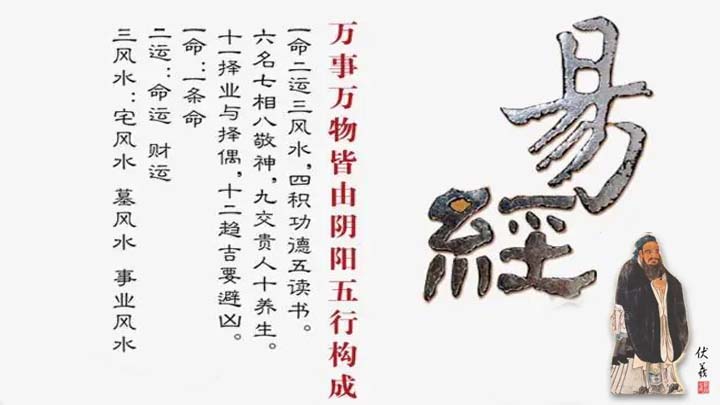 易經
万事万物皆由阴阳五行构成
一命二运三风水，四积功德五读书。
六名七相八敬神，九交贵人十养生。
十一择业与择偶，十二趋吉要避凶。
一命：一条命
二运：命运 财运
三风水：宅风水 墓风水 事业风水
伏羲